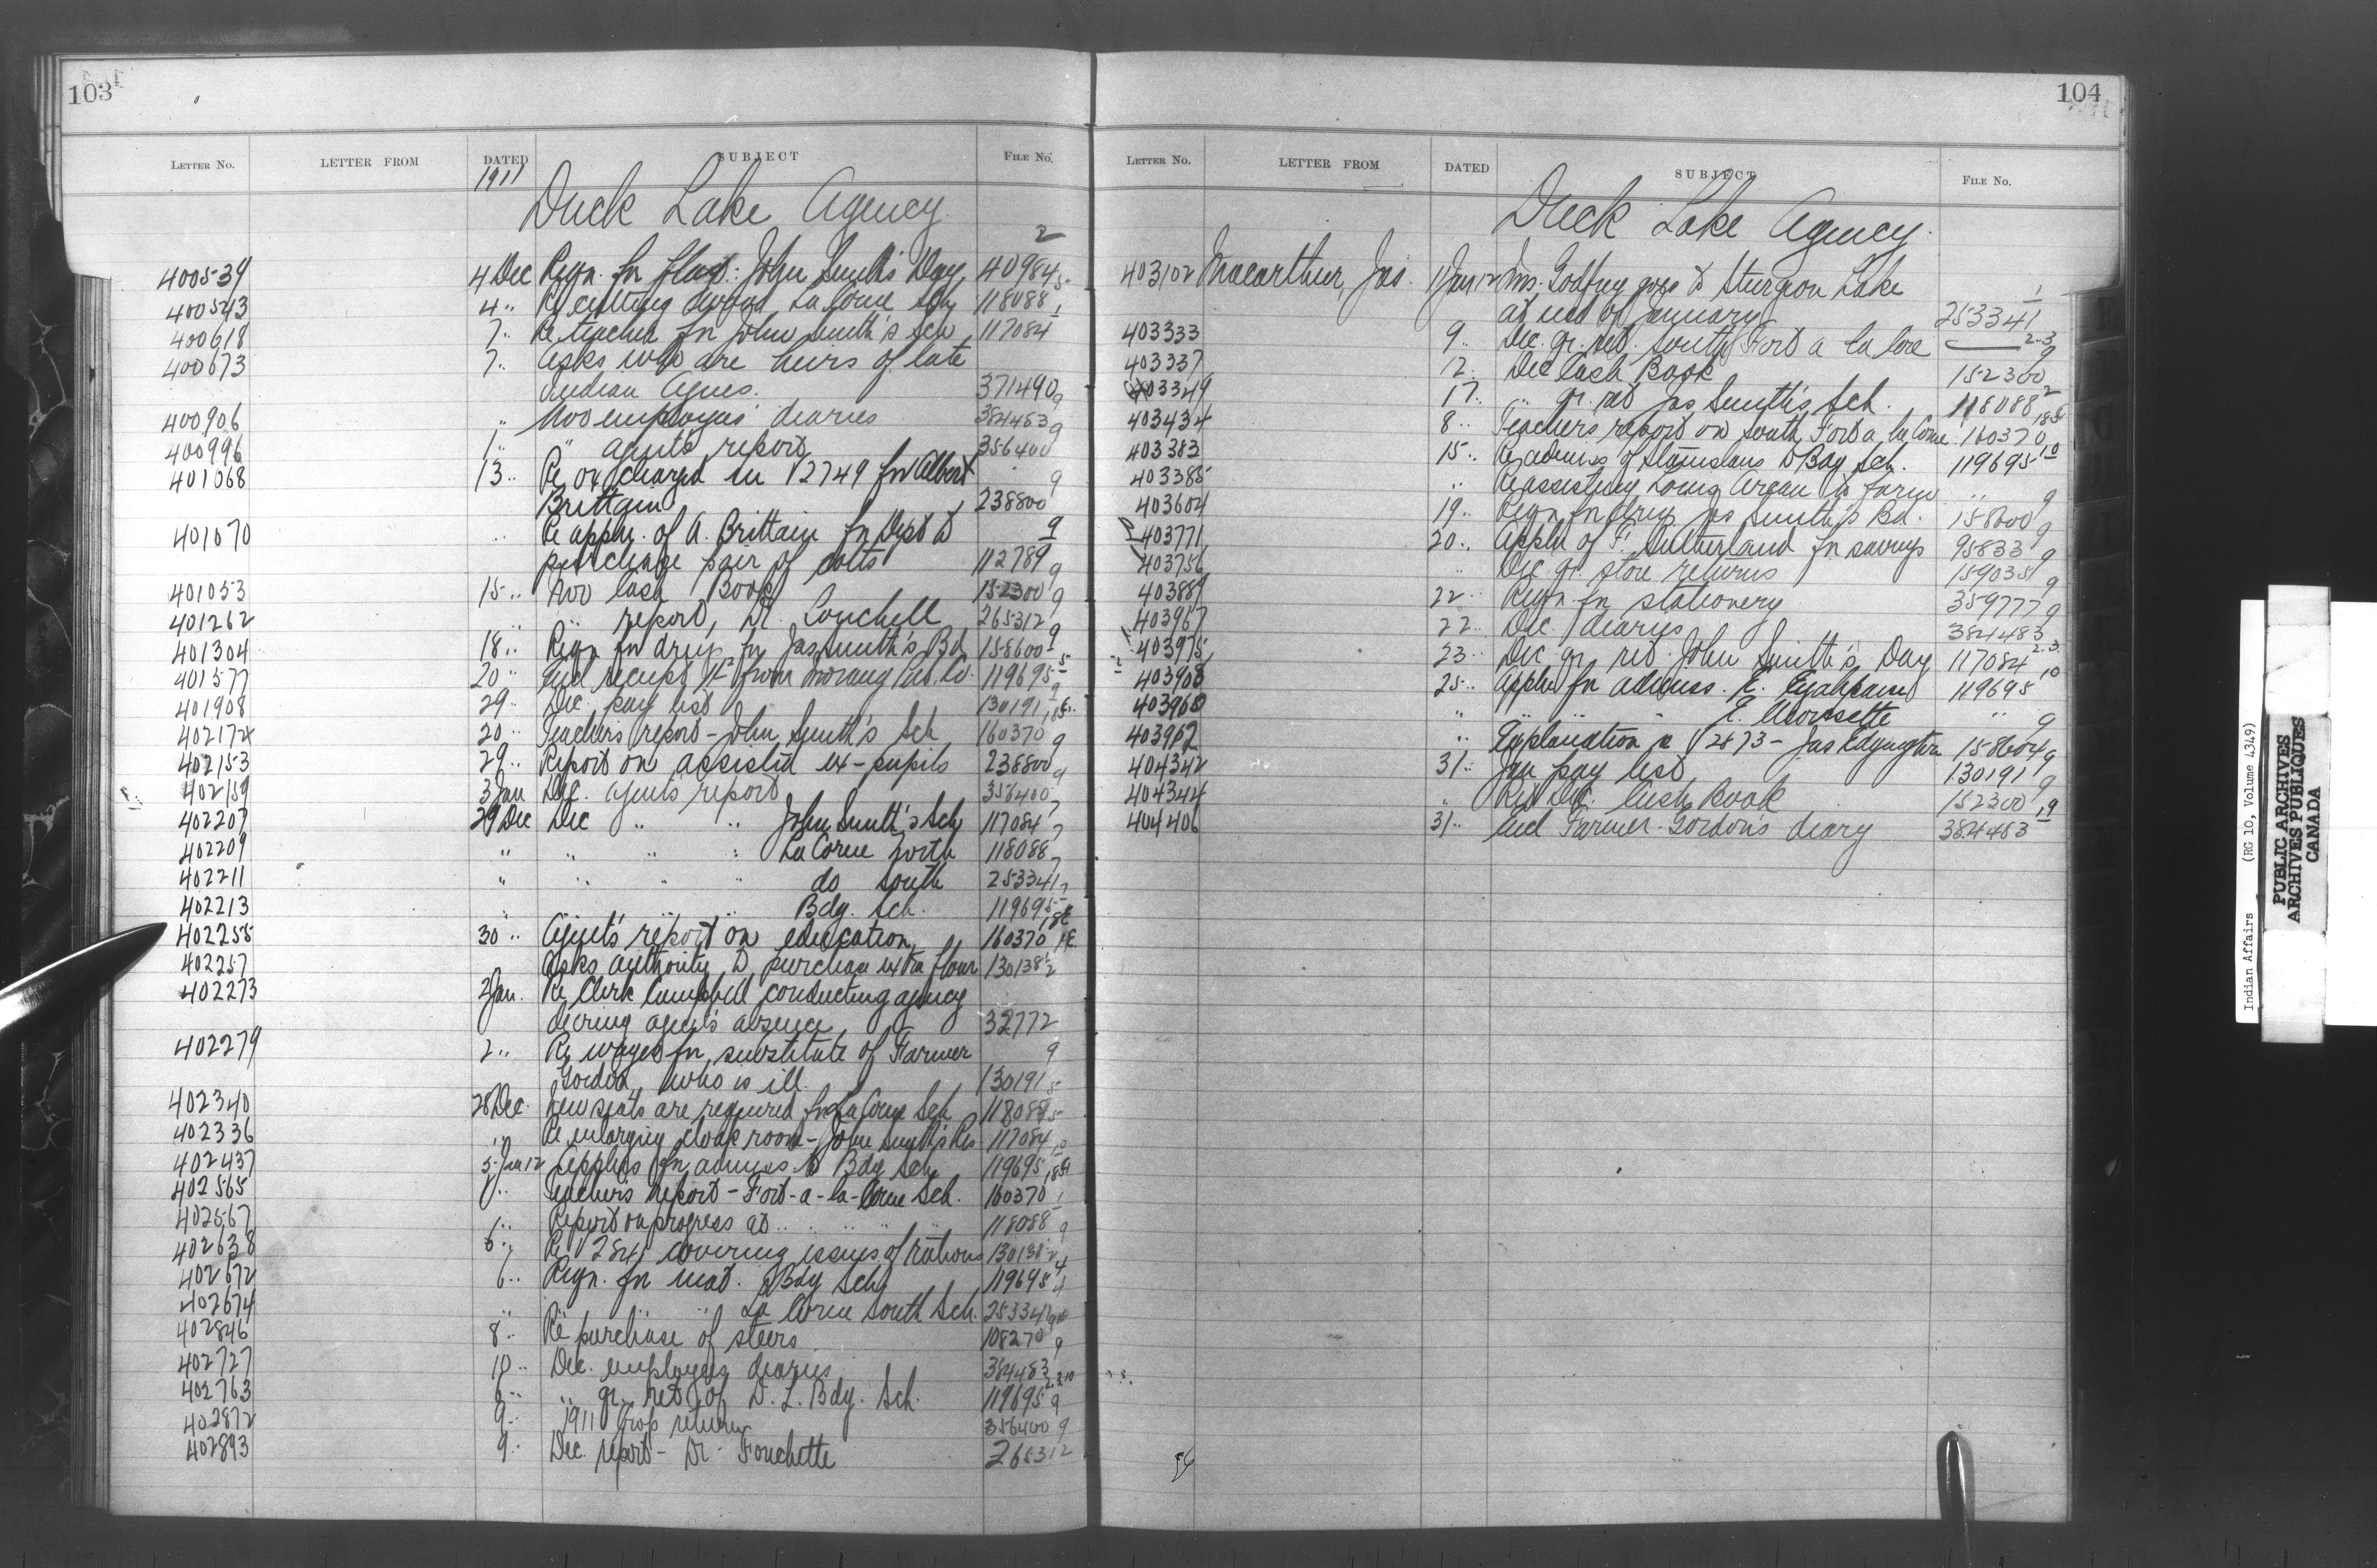 103
LETTER NO. LETTER FROM DATED SUBJECT FILE No.
1911
Duck Lake Agency
2
400539 4 Dec Reqn. for flag: John Smith's Day 40984
400543 4 " Re cutting wood La Corne Sch 118088
400618 7 " Re teacher for John Smith's Sch 117084
400673 7 " Asks who are heirs of late
Indian Agnes. 371490
400906 " Nov employees' diaries 384483
400996 1 " " agent's report 356400
401068 13 " Re ox charged in V2749 for Albert
Brittain 238800
401070 " Re appln. of A. Brittain for Dept to
purchase pair of colts 112789
401053 15 " Nov Cash Book 152300
401262 " " report, Dr. 265312
401304 18 " Reqn for drugs for Jas Smith's Bd 158600
401577 20 " receipt from Morang Pub. Co. 119695
401908 29 " Dec. pay list 130191
402174 20 " Teacher's report - John Smith's Sch 160370
402153 29 " Report on assisted ex-pupils 238800
402159 3 Jan Dec. agent's report 356400
402207 29 Dec Dec " " John Smith's Sch 117084
402209 " " " " La Corne North 118088
402211 " " " " do South 253341
402213 " " " " Bdg. Sch. 119695
402255 30 " Agent's report on education 160370
402257 Asks authority to purchase extra flour 130138
402273 2 Jan. Re Clerk Campbell conducting agency
during agent's absence 32772
402279 2 " Re wages for substitute of Farmer
Gordon, who is ill 130191
402340 28 Dec. New seats are required for La Corne Sch 118088
402336 " Re enlarging cloak room - John Smith's Res 117084
402437 5 Jan 12 Applns for admiss. to Bdg Sch 119695
402565 " Teacher's report - Fort-a-la-Corne Sch. 160370
402567 " Report on progress at " " " 118088
402638 6 " Re V 284 covering issues of rations 130138
402672 6 " Reqn. for mat. Bdg Sch 119695
402674 " " " " La Corne South Sch. 253341
402846 8 " Re purchase of steers 108270
402727 10 " Dec. employees diaries 384483
402763 6 " " qr. ret of D. L. Bdg. Sch. 119695
402872 9 " 1911 Crop return 356400
402893 9 " Dec. report - Dr. Touchette 265312
104
LETTER NO. LETTER FROM DATED SUBJECT FILE No.
Duck Lake Agency
403102 Macarthur, Jas. 11 Jan 12 Mrs. Godfrey goes to Sturgeon Lake
at end of January 253341
403333 9 " Dec. qr. ret. South Fort a la Corne
403337 12 " Dec Cash Book 152300
403349 17 " " qr. ret Jas Smith's Sch. 118088
403434 8 " Teachers report on South Fort a la Corne 160370
403383 15 " Re admiss of to Bdg Sch. 119695
403385 " Re assisting Louis to farm "
403604 19 " Reqn for drugs Jas Smith's Bd. 158600
403771 20 " Appln of F. Sutherland for savings 95833
403756 " Dec qr. store returns 159035
403889 22 " Reqn for stationery 359777
403967 22 " Dec. diaries 384483
403975 23 " Dec qr. ret. John Smith's Day 117084
403908 25 " Appln for admiss. E. 119695
403960 " " " E. "
403962 " Explanation re V2873 - Jas 158604
404342 31 " Jan pay list 130191
404344 " Dec. Cash Book 152300
404406 31 " Farmer Gordon's diary 384483
Indian Affairs (RG 10, Volume 4349)
PUBLIC ARCHIVES
ARCHIVES PUBLIQUES
CANADA